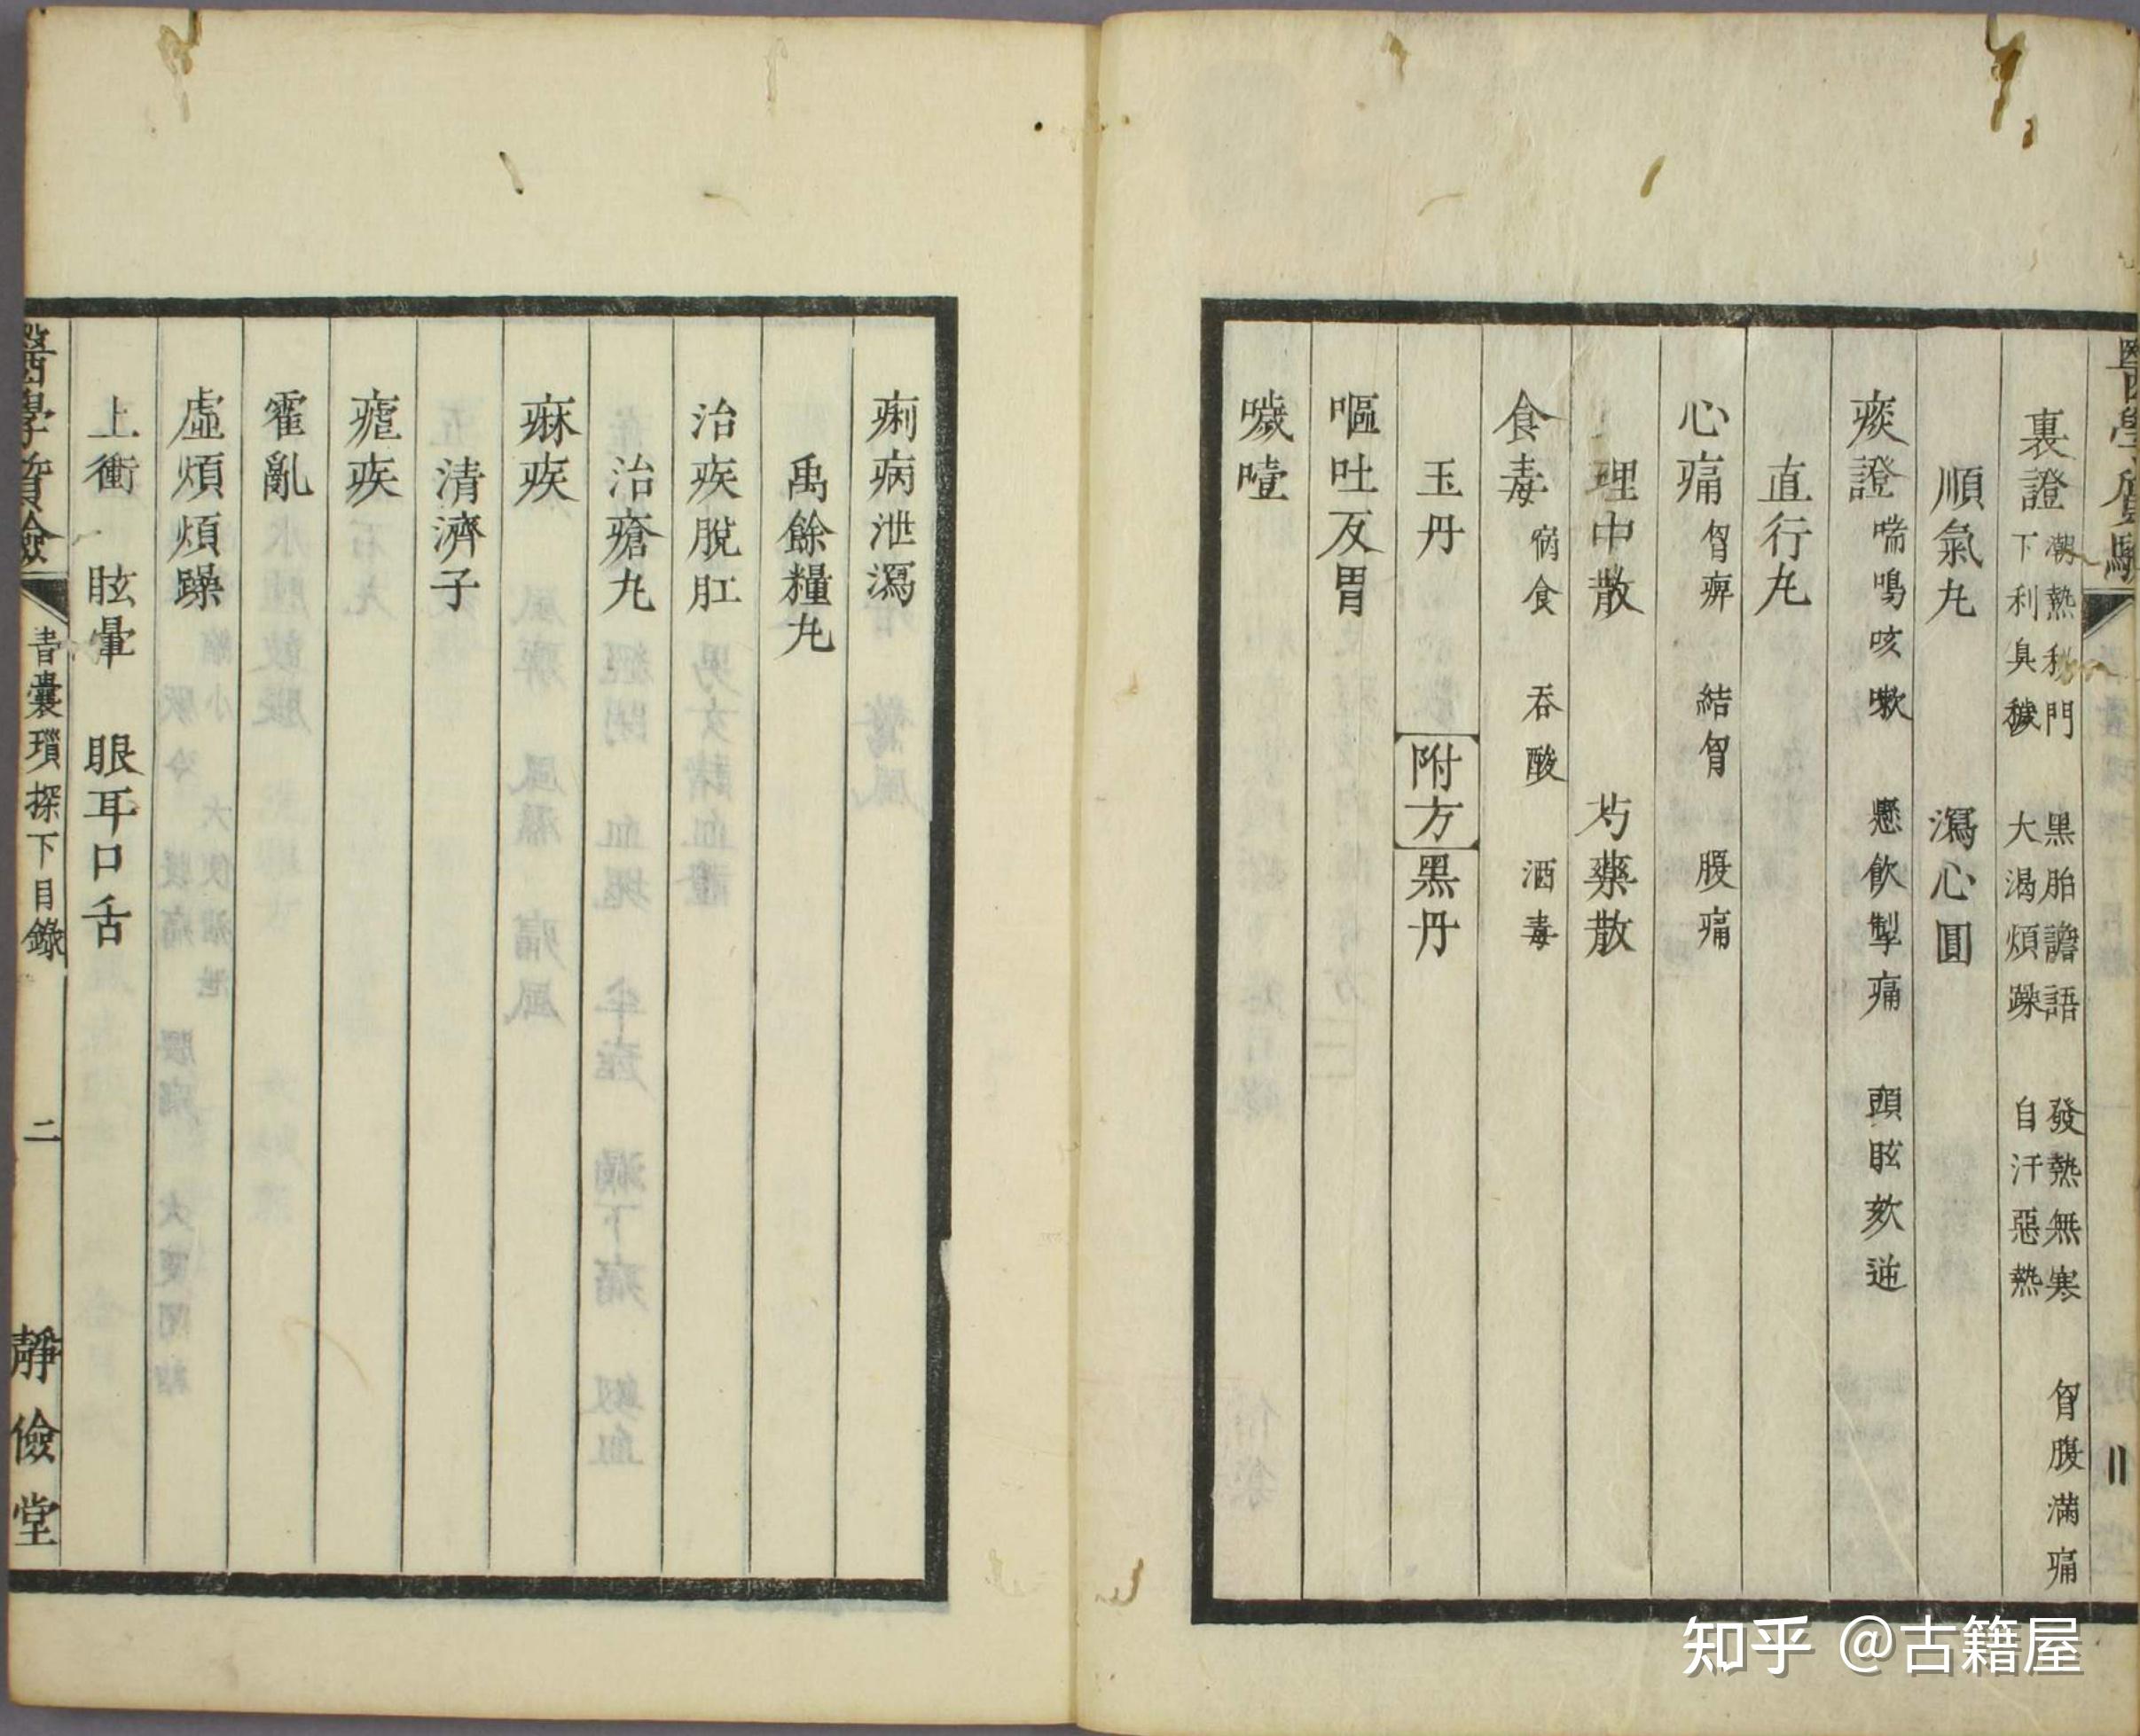 醫學質驗
二
裏證 潮熱秘門 黑胎譫語 發熱無寒 胷腹滿痛
下利臭穢 大渴煩躁 自汗惡熱
順氣丸 瀉心圓
痰證 喘鳴咳嗽 懸飲掣痛 頭眩欬逆
直行丸
心痛 胷痹 結胷 腹痛
理中散 芍藥散
食毒 宿食 吞酸 酒毒
玉丹 附方 黑丹
嘔吐反胃
噦噎
痢病泄瀉
禹餘糧丸
治疾脫肛
治瘡丸
麻疾
清濟子
瘧疾
霍亂
虛煩煩躁
上衝 眩暈 眼耳口舌
醫學質驗 書囊瑣探下目錄 二 靜儉堂
知乎 @古籍屋